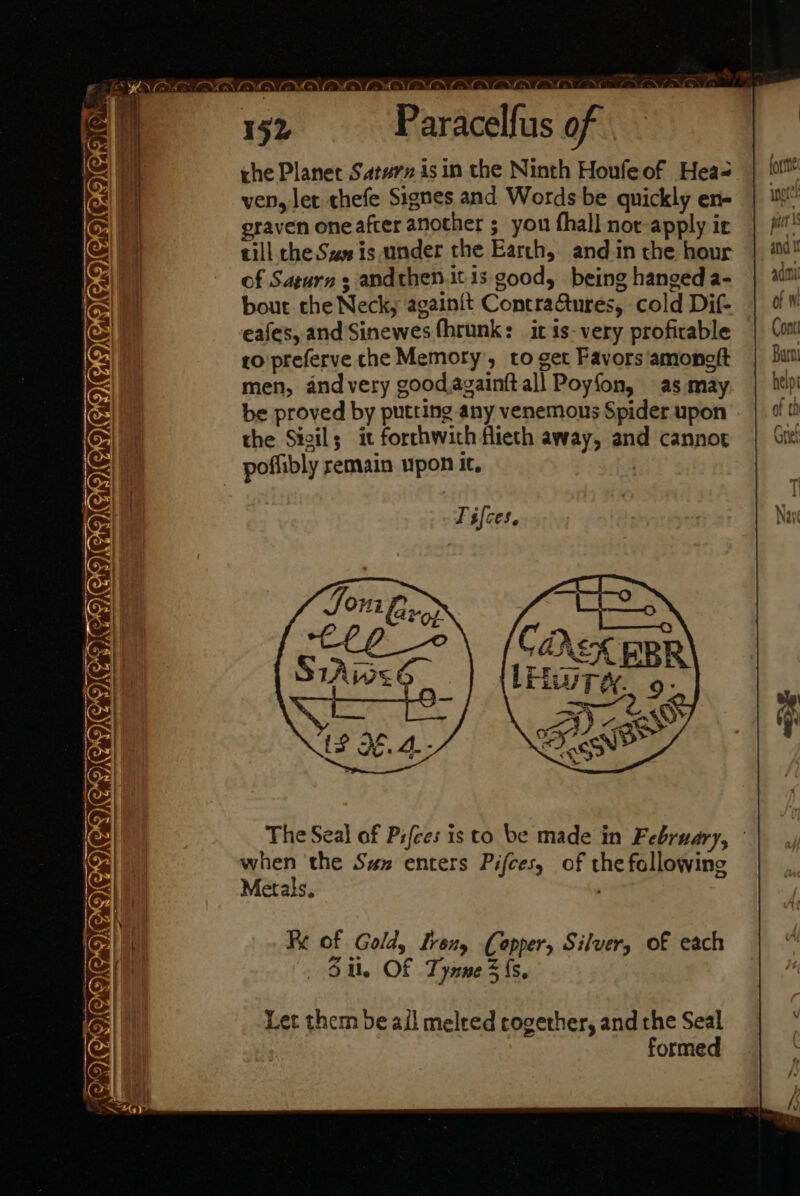 152 Paracelſus of
the Planet Saturn is in the Ninth Houſe of Hea-
ven, let theſe Signes and Words be quickly en-
graven one after another ; you ſhall not apply it
till the Sun is under the Earth, and in the hour
of Saturn ; and then it is good, being hanged a-
bout the Neck, againſt Contractures, cold Diſ-
eaſes, and Sinewes ſhrunk: it is very profitable
to preſerve the Memory, to get Favors amongſt
men, and very good againſt all Poyſon, as may
be proved by putting any venemous Spider upon
the Sigil ; it forthwith flieth away, and cannot
poſſibly remain upon it.
Piſces.
SiAwsG
CaReX EBR
The Seal of Piſces is to be made in February,
when the Sun enters Piſces, of the following
Metals.
℞ of Gold, Iron, Copper, Silver, of each
ʒ ii. Of Tynne ℥ ſs.
Let them be all melted together, and the Seal
formed